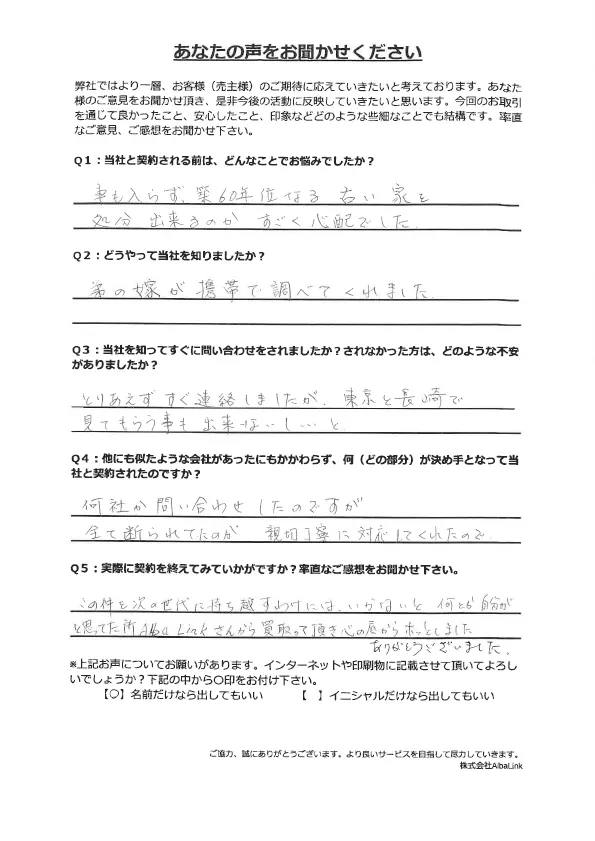 あなたの声をお聞かせください
弊社ではより一層、お客様（売主様）のご期待に応えていきたいと考えております。あなた
様のご意見をお聞かせ頂き、是非今後の活動に反映していきたいと思います。今回のお取引
を通じて良かったこと、安心したこと、印象などどのような些細なことでも結構です。率直
なご意見、ご感想をお聞かせ下さい。
Q1：当社と契約される前は、どんなことでお悩みでしたか？
車も入らず、築60年位なる 古い 家を
処分 出来るのか すごく心配でした.
Q2：どうやって当社を知りましたか？
弟の嫁が 携帯で調べて くれました.
Q3：当社を知ってすぐに問い合わせをされましたか？されなかった方は、どのような不安
がありましたか？
とりあえず すぐ連絡しましたが、東京と長崎で
見てもらう事も 出来ないし…と
Q4：他にも似たような会社があったにもかかわらず、何（どの部分）が決め手となって当
社と契約されたのですか？
何社か問い合わせ したのですが
全て断られてたのが 親切丁寧に対応してくれたので
Q5：実際に契約を終えてみていかがですか？率直なご感想をお聞かせ下さい。
この件を次の世代に持ち越すわけには、いかないと 何とか自分が
と思ってた所AlbaLinkさんから買取って頂き心の底からホッとしました
ありがとうございました.
※上記お声についてお願いがあります。インターネットや印刷物に記載させて頂いてよろし
いでしょうか？下記の中から〇印をお付け下さい。
【〇】名前だけなら出してもいい 【　】イニシャルだけなら出してもいい
ご協力、誠にありがとうございます。より良いサービスを目指して尽力していきます。
株式会社AlbaLink